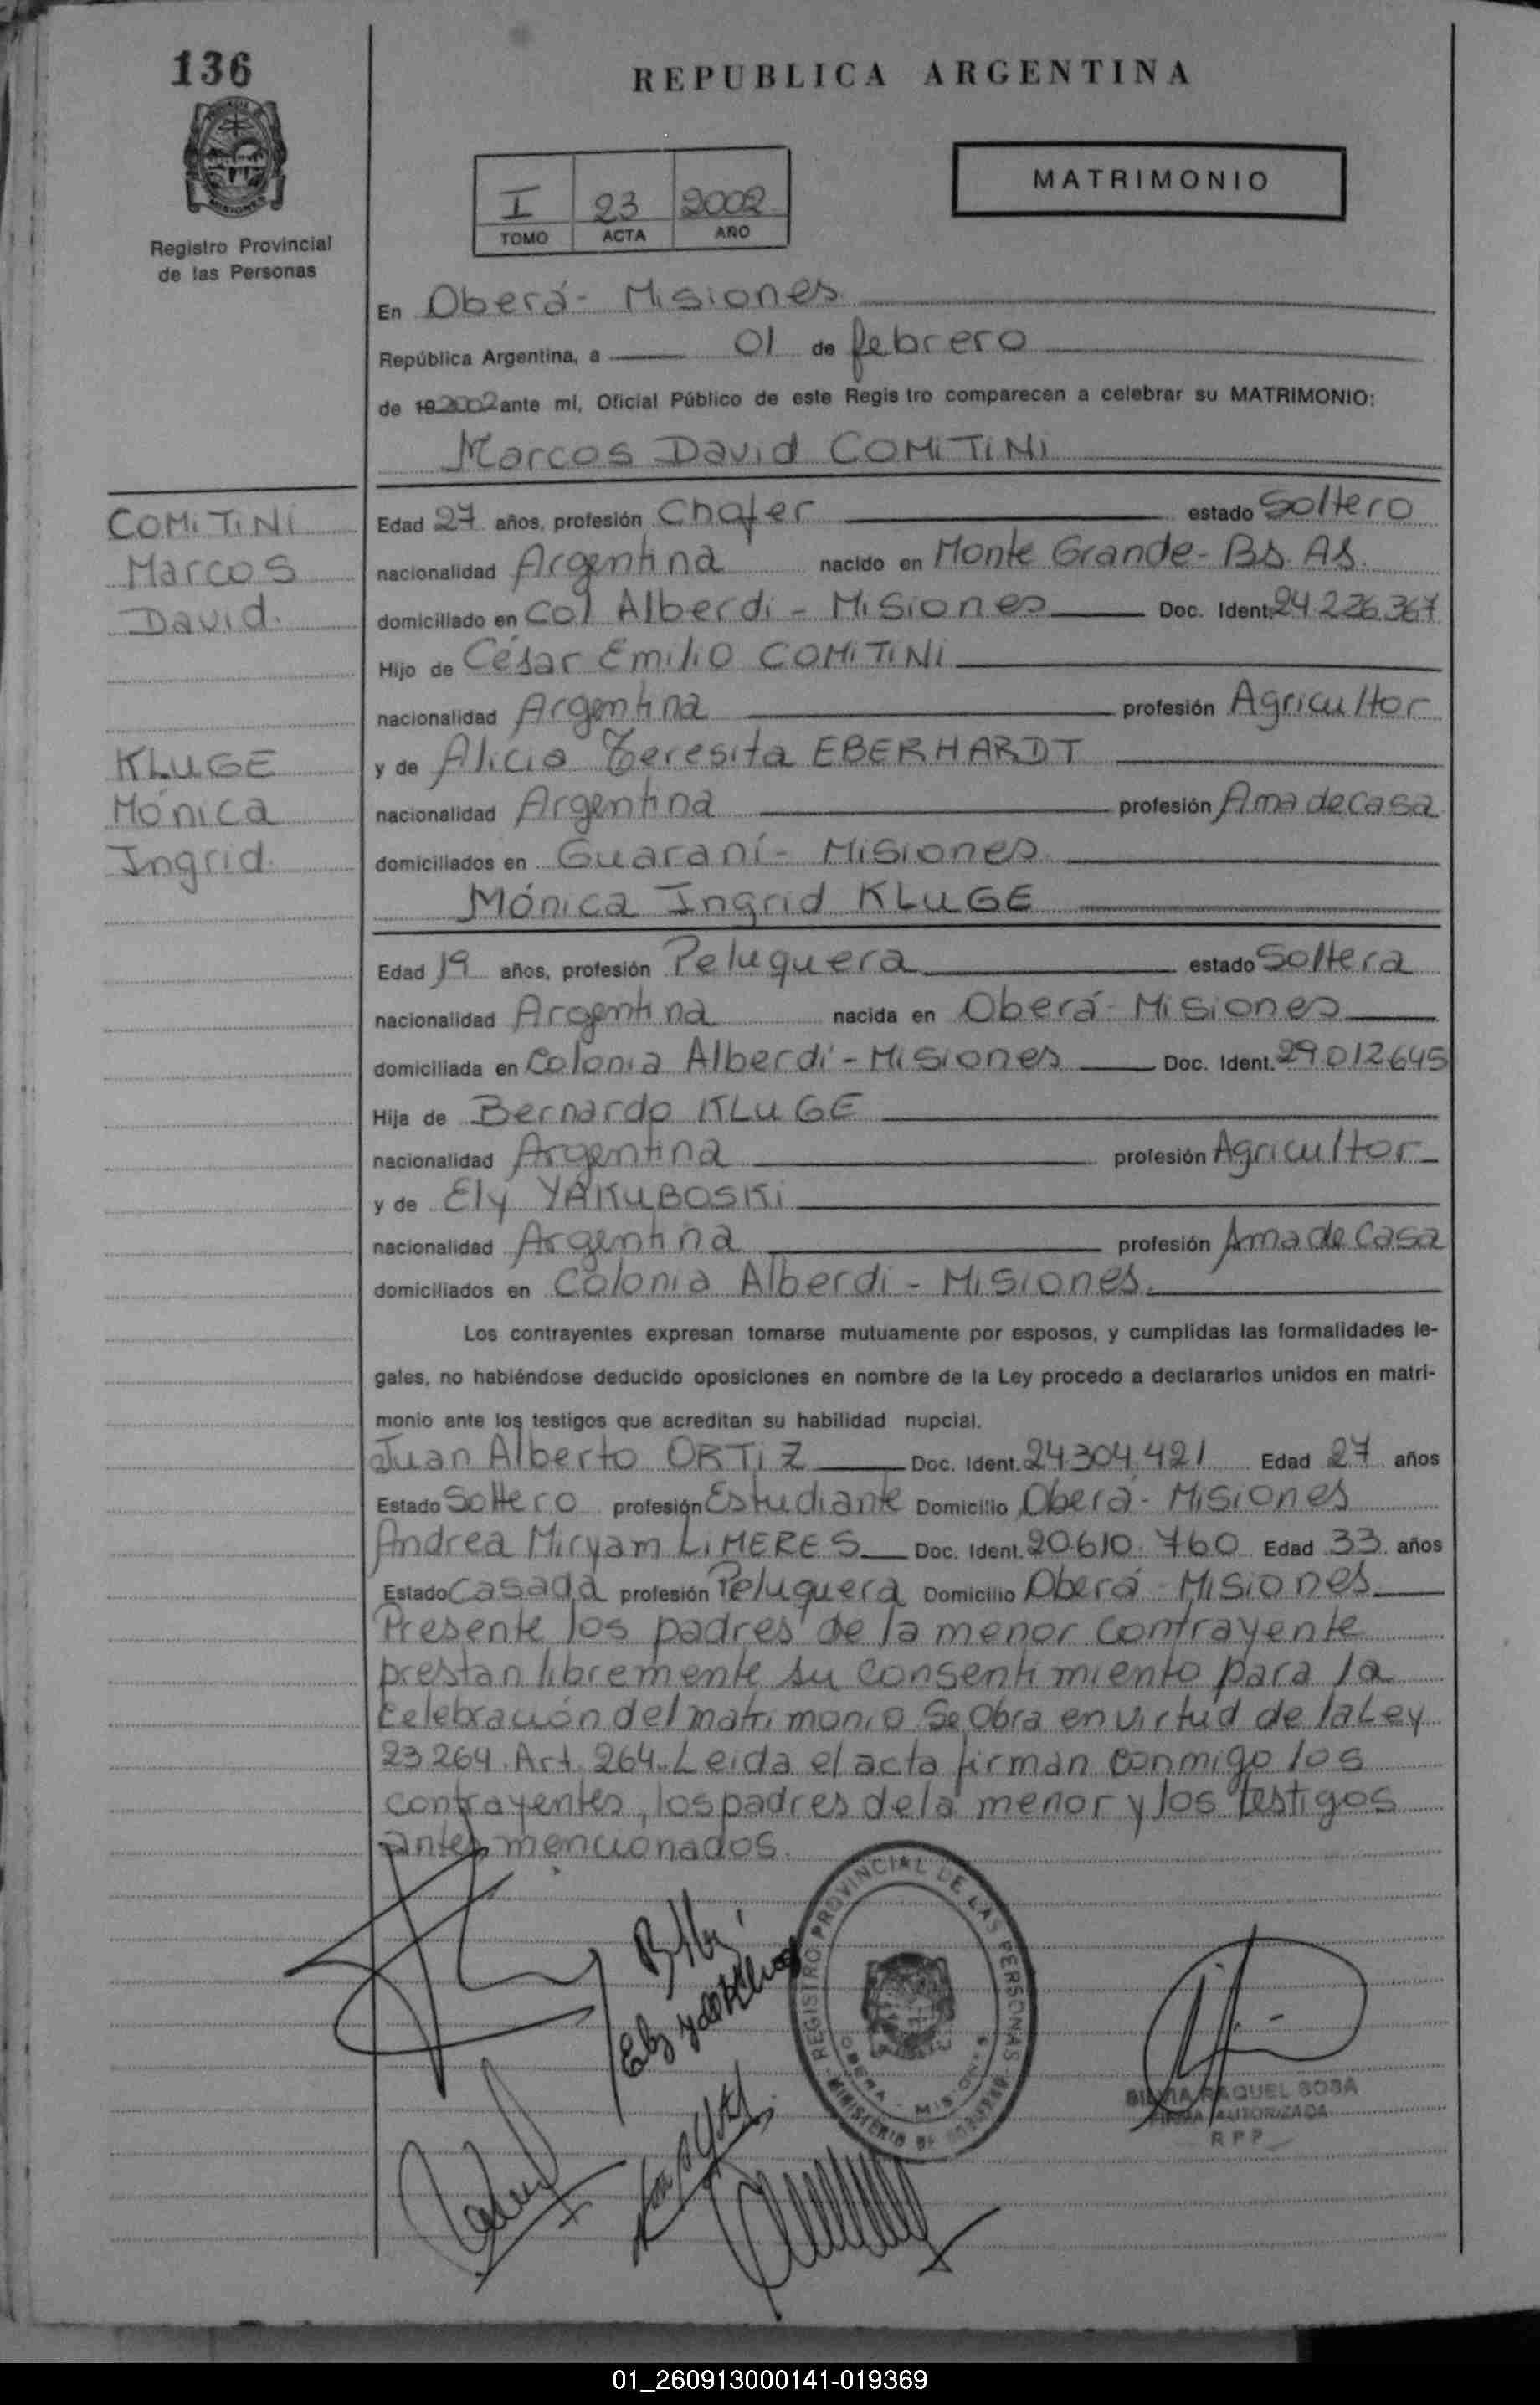 136
REPUBLICA ARGENTINA
Registro Provincial
de las Personas
I 23 2002
TOMO ACTA AÑO
MATRIMONIO
En Oberá - Misiones
República Argentina, a 01 de febrero
de 19 2002 ante mí, Oficial Público de este Regis tro comparecen a celebrar su MATRIMONIO:
Marcos David COMiTiNi
COMiTiNi
Marcos
David.
Edad 27 años, profesión Chofer estado Soltero
nacionalidad Argentina nacido en Monte Grande - Bs. As.
domiciliado en Col Alberdi - Misiones Doc. Ident. 24.226.367
Hijo de César Emilio COMiTiNi
nacionalidad Argentina profesión Agricultor
KLUGE
Mónica
Ingrid.
y de Alicia Teresita EBERHARDT
nacionalidad Argentina profesión Ama de casa
domiciliados en Guaraní - Misiones
Mónica Ingrid KLUGE
Edad 19 años, profesión Peluquera estado Soltera
nacionalidad Argentina nacida en Oberá - Misiones
domiciliada en Colonia Alberdi - Misiones Doc. Ident. 29.012.645
Hija de Bernardo KLUGE
nacionalidad Argentina profesión Agricultor
y de Ely YAKUBOSKi
nacionalidad Argentina profesión Ama de Casa
domiciliados en Colonia Alberdi - Misiones.
Los contrayentes expresan tomarse mutuamente por esposos, y cumplidas las formalidades le-
gales, no habiéndose deducido oposiciones en nombre de la Ley procedo a declararlos unidos en matri-
monio ante los testigos que acreditan su habilidad nupcial.
Juan Alberto ORTiZ Doc. Ident. 24.304.421 Edad 27 años
Estado Soltero profesión Estudiante Domicilio Oberá - Misiones
Andrea Miryam LiMERES Doc. Ident. 20.610.760 Edad 33 años
Estado Casada profesión Peluquera Domicilio Oberá - Misiones
Presente los padres de la menor contrayente
prestan libremente su consentimiento para la
celebración del matrimonio Se Obra en virtud de la Ley
23264. Art. 264. Leida el acta firman conmigo los
contrayentes, los padres de la menor y los testigos
antes mencionados.
REGISTRO PROVINCIAL DE LAS PERSONAS
OBERA - MISIONES
MINISTERIO DE GOBIERNO
SILVIA RAQUEL SOSA
FIRMA AUTORIZADA
R P P
01_260913000141-019369